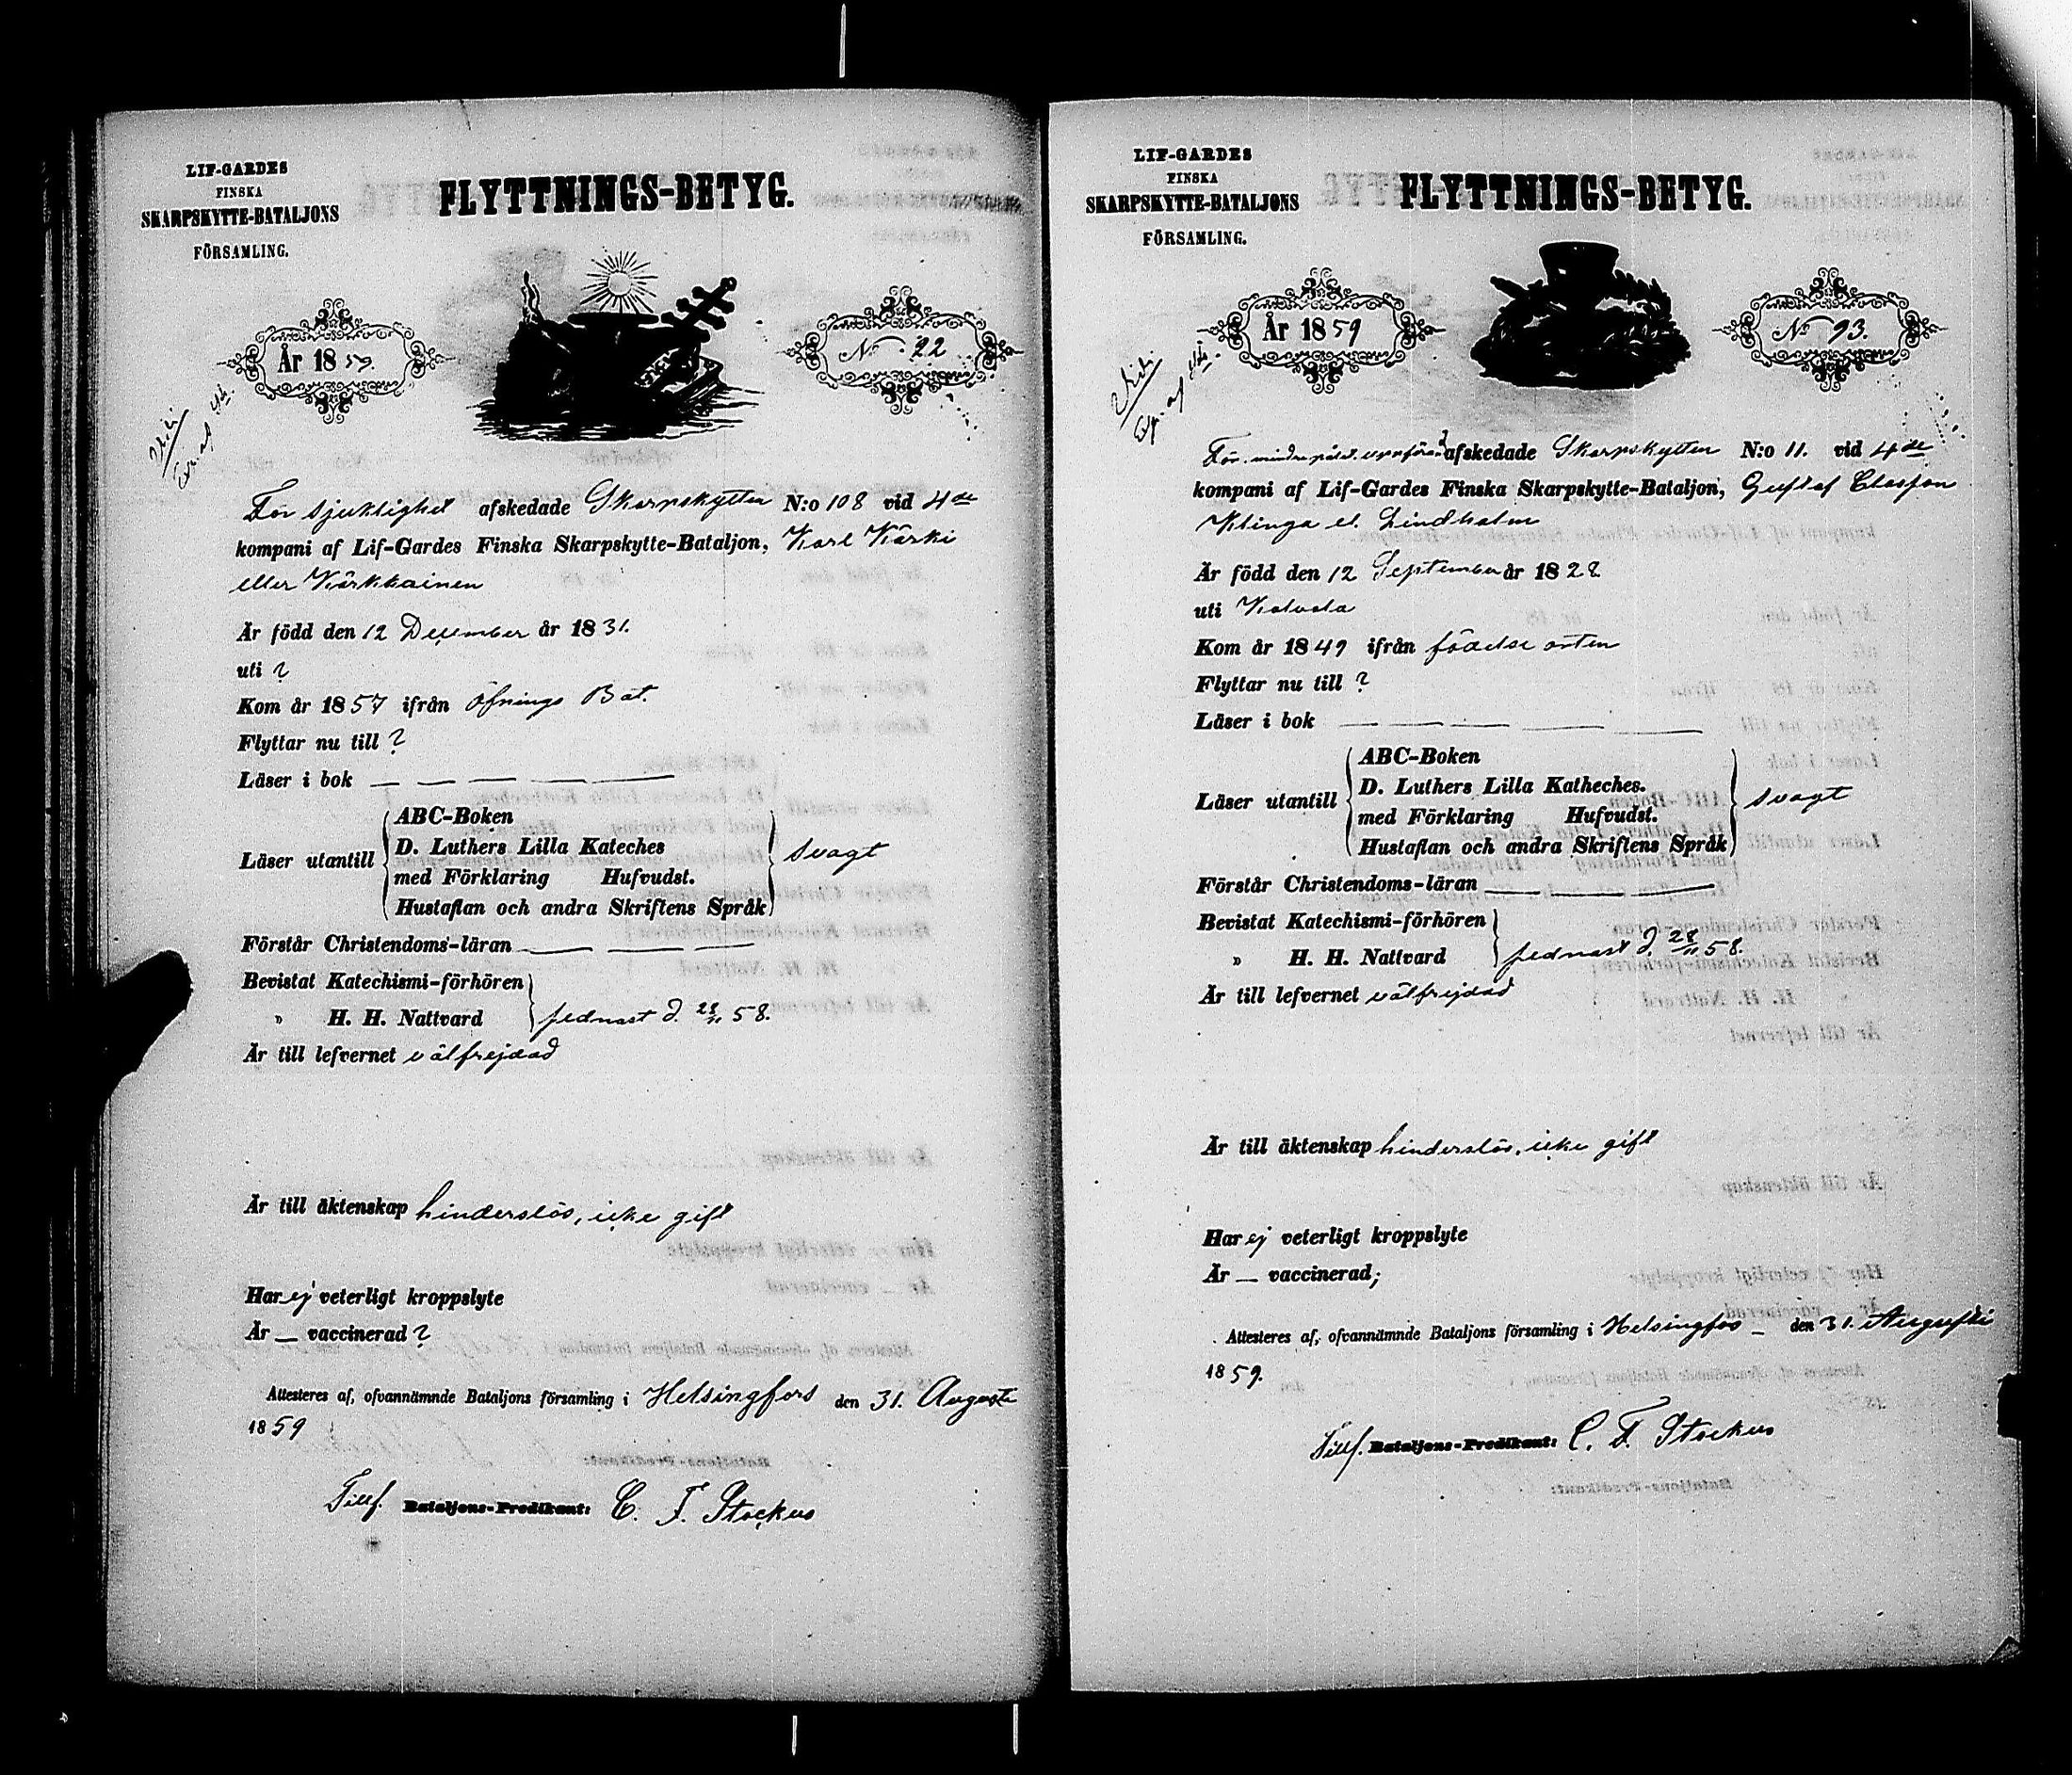 LIF-GARDES
FINSKA
SKARPSKYTTE-BATALJONS
FÖRSAMLING.
FLYTTNINGS-BETYG.
År 1859.
No 22
För sjuklighet afskedade Skarpskytten N:o 108 vid 4de
kompani af Lif-Gardes Finska Skarpskytte-Bataljon, Karl Kärki
eller Kärkkainen
Är född den 12 December år 1831.
uti ?
Kom år 1857 ifrån Öfnings Bat.
Flyttar nu till ?
Läser i bok — — — — —
Läser utantill
ABC-Boken
D. Luthers Lilla Kateches
med Förklaring Hufvudst.
Hustaflan och andra Skriftens Språk
svagt
Förstår Christendoms-läran — — — —
Bevistat Katechismi-förhören
„ H. H. Nattvard
sednast d. 28/11 58.
Är till lefvernet välfrejdad
Är till äktenskap hinderslös, icke gift
Har ej veterligt kroppslyte
Är — vaccinerad ?
Attesteres af, ofvannämnde Bataljons församling i Helsingfors den 31. Augusti
1859
Tillf. Bataljons-Predikant: C. F. Stockus
LIF-GARDES
FINSKA
SKARPSKYTTE-BATALJONS
FÖRSAMLING.
FLYTTNINGS-BETYG.
År 1859
No 93.
För mindre afskedade Skarpskytten N:o 11. vid 4de
kompani af Lif-Gardes Finska Skarpskytte-Bataljon, Gustaf Classon
Klinga el. Lindholm
Är född den 12 September år 1828
uti Kalvola
Kom år 1849 ifrån födelse orten
Flyttar nu till ?
Läser i bok — — — —
Läser utantill
ABC-Boken
D. Luthers Lilla Katheches.
med Förklaring Hufvudst.
Hustaflan och andra Skriftens Språk
svagt
Förstår Christendoms-läran — — —
Bevistat Katechismi-förhören
„ H. H. Nattvard
sednast d. 28/11 58.
Är till lefvernet välfrejdad
Är till äktenskap hinderslös, icke gift
Har ej veterligt kroppslyte
Är — vaccinerad;
Attesteres af, ofvannämnde Bataljons församling i Helsingfors — den 31. Augusti
1859.
Tillf. Bataljons-Predikant: C. F. Stockus